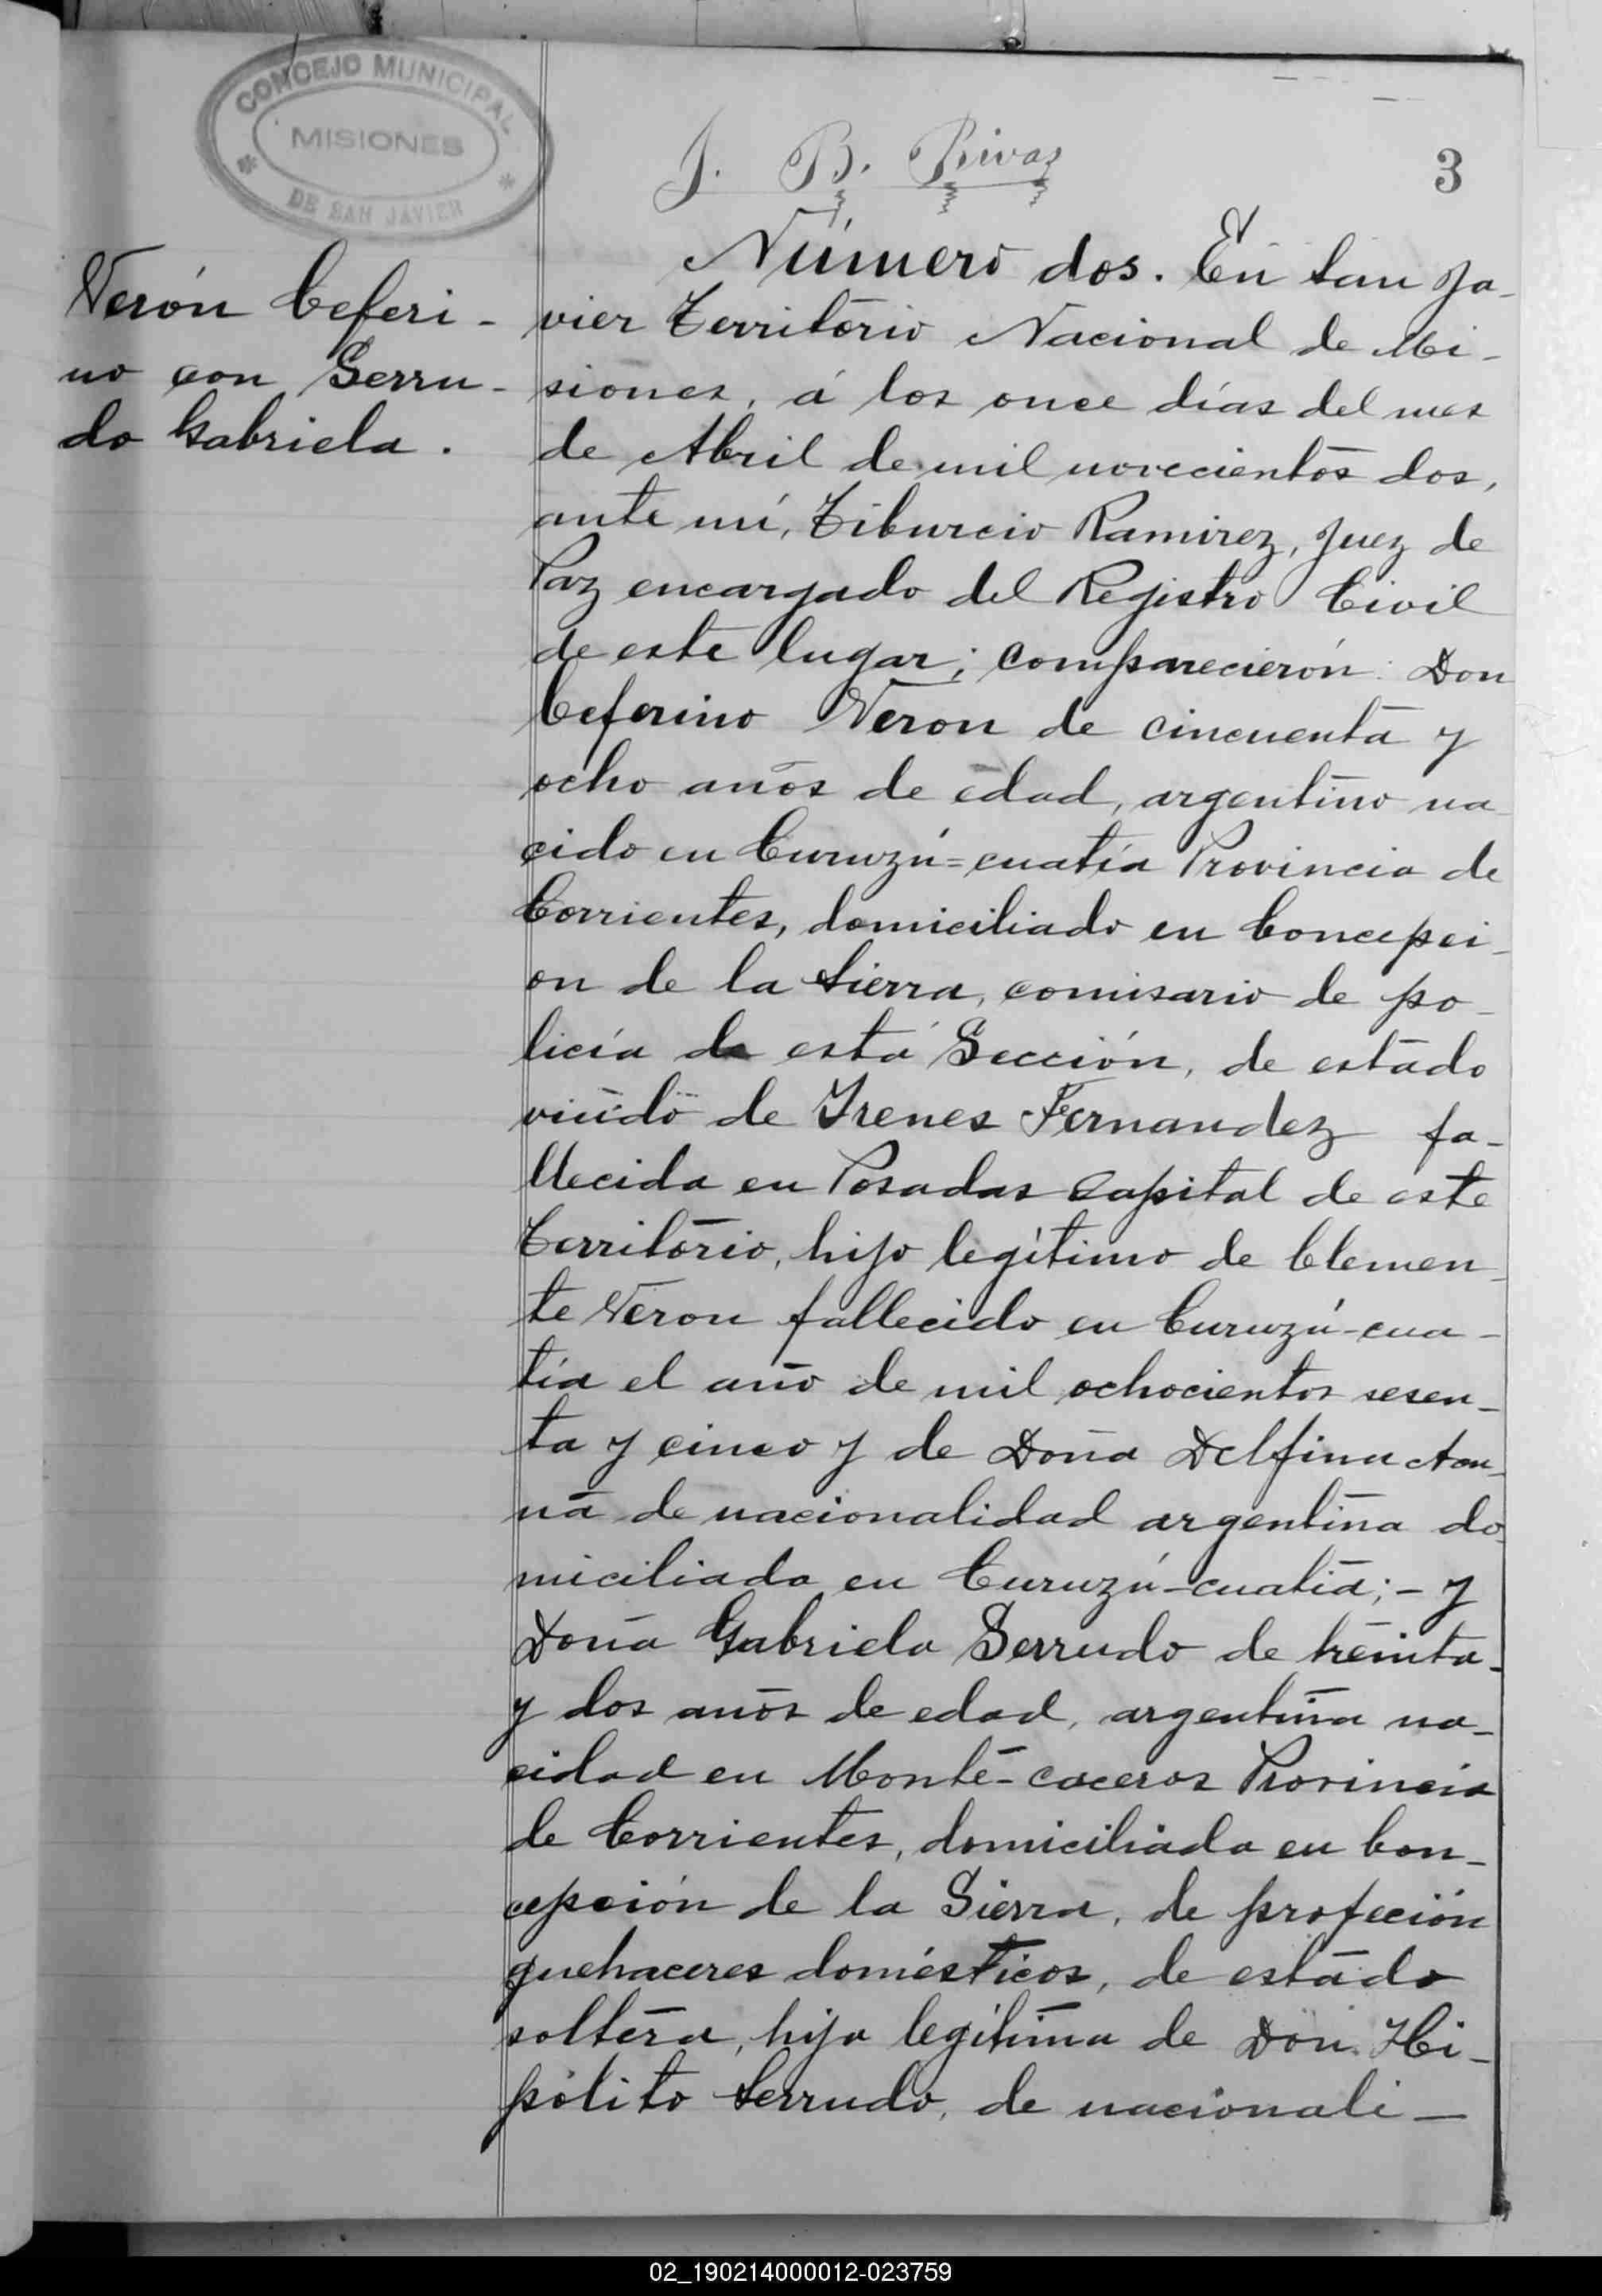 CONCEJO MUNICIPAL
MISIONES
DE SAN JAVIER
J. B. Rivas
3
Verón Ceferi-
no con Serru-
do Gabriela.
Número dos. En San Ja-
vier Territorio Nacional de Mi-
siones, á los once días del mes
de Abril de mil novecientos dos,
ante mí, Tiburcio Ramirez, Juez de
Paz encargado del Registro Civil
de este lugar; comparecierón: Don
Ceferino Veron de cincuenta y
ocho años de edad, argentino na
cido en Curuzú=cuatía Provincia de
Corrientes, domiciliado en Concepci-
on de la Sierra, comisario de po-
licía de está Sección, de estado
viudo de Yrenes Fernandez fa-
llecida en Posadas Capital de este
Territorio, hijo legítimo de Clemen-
te Veron fallecido en Curuzú-cua-
tía el año de mil ochocientos sesen-
ta y cinco y de Doña Delfina
de nacionalidad argentina do
miciliada en Curuzú-cuatiá;- y
Doña Gabriela Serrudo de treinta-
y dos años de edad, argentina na-
cidad en Monte-caceros Provincia
de Corrientes, domiciliada en Con-
cepción de la Sierra, de profeción
quehaceres domésticos, de estado
soltera, hija legítima de Don Hi-
pólito Serrudo, de nacionali-
02_190214000012-023759